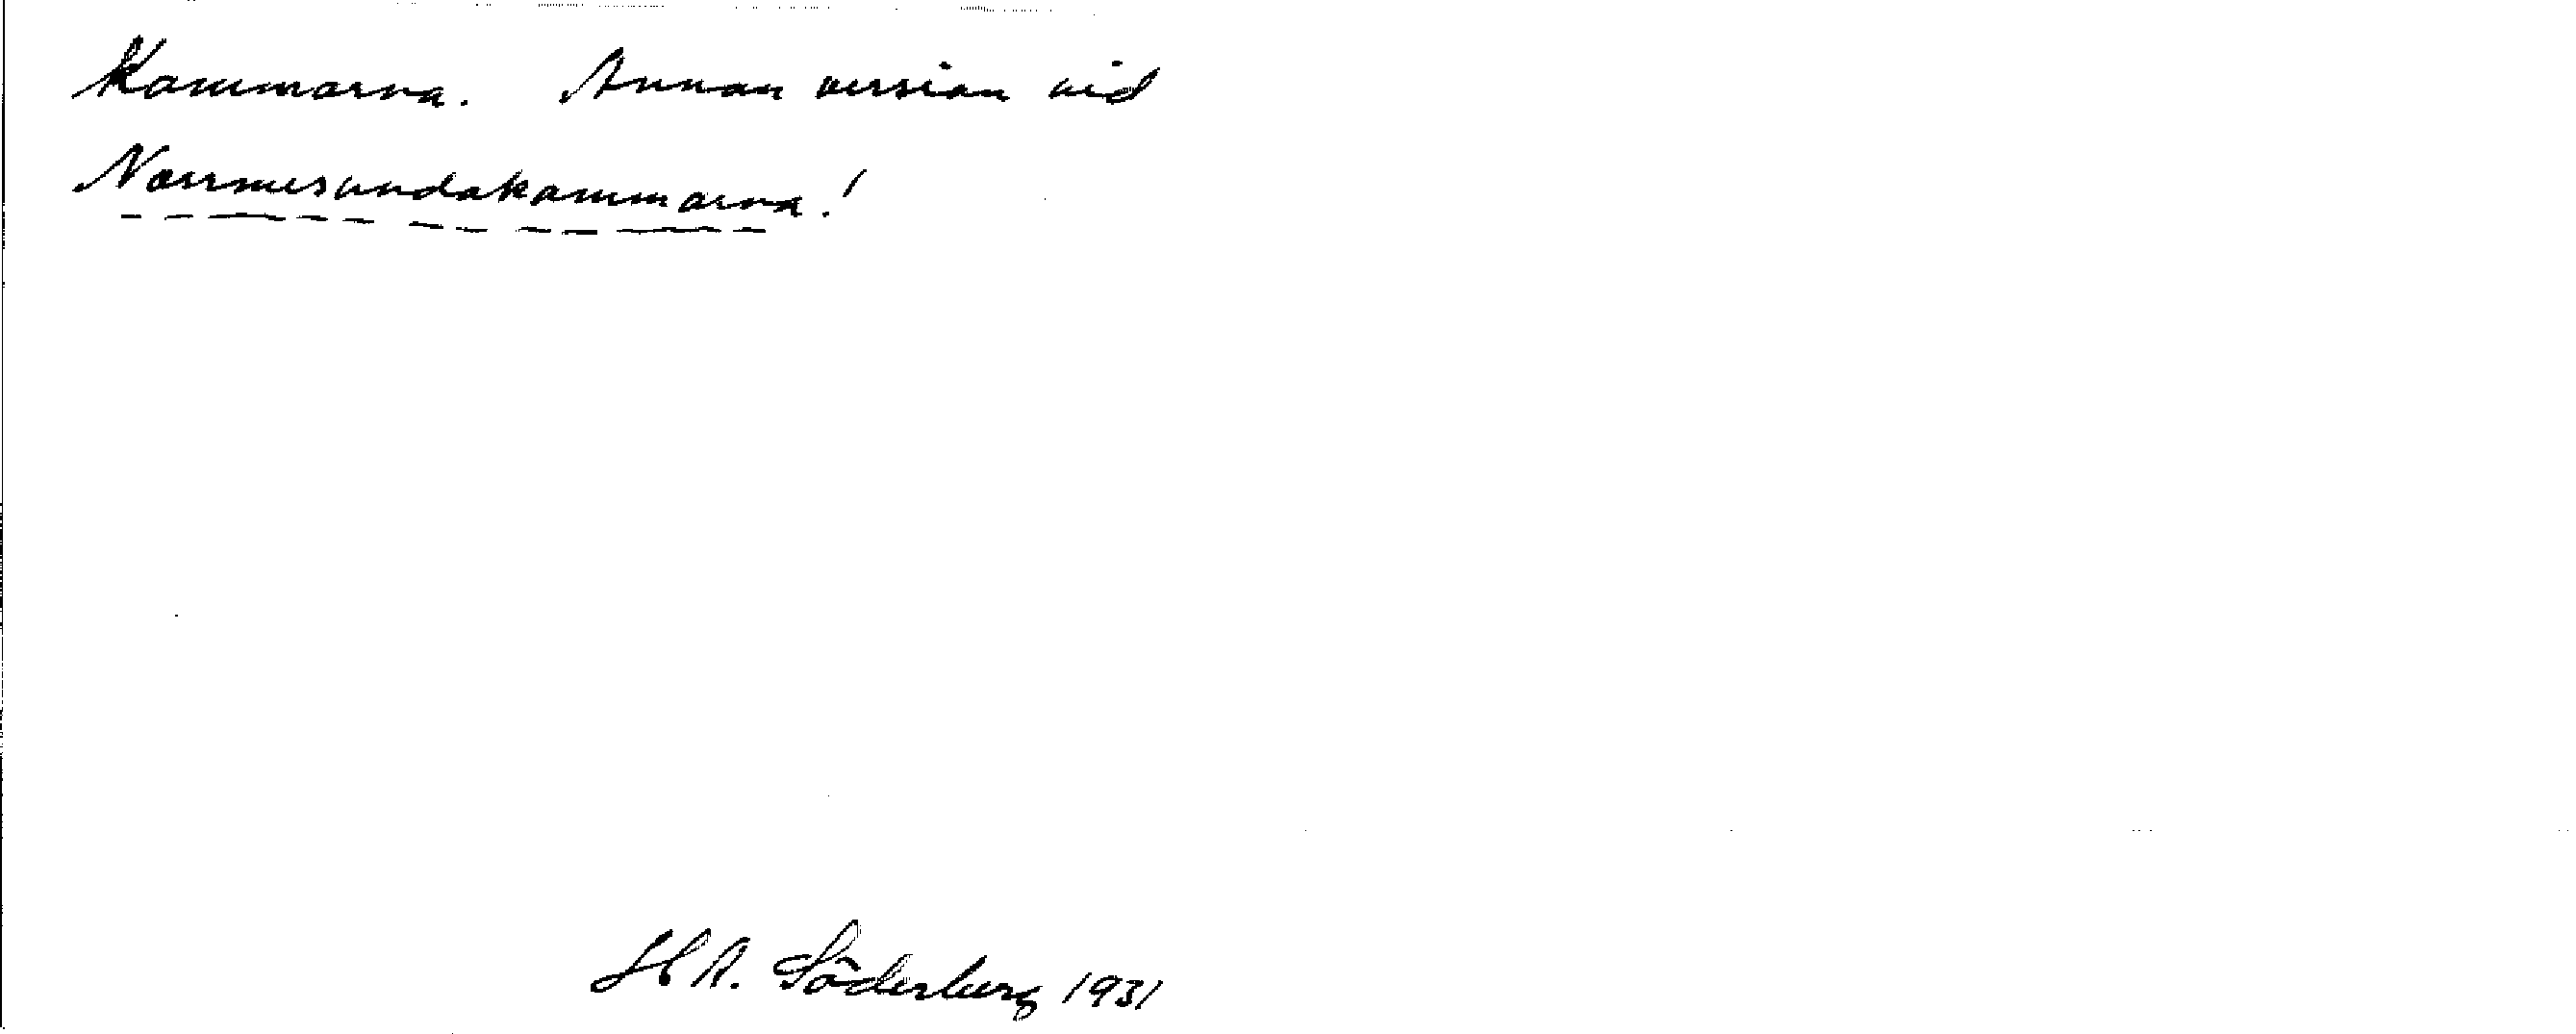 Kammarna. Annan version vid
Norrmesundakammarna!
H A. Söderberg 1931